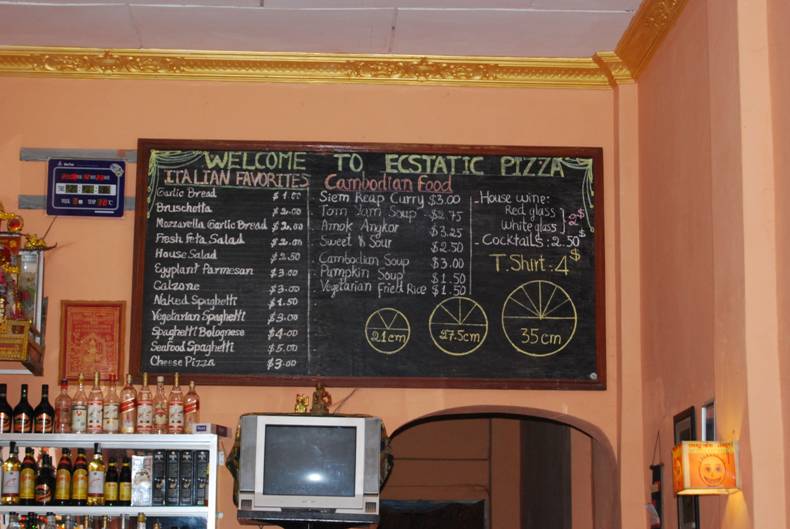 WELCOME TO ECSTATIC PIZZA
ITALIAN FAVORITES
Garlic Bread $1.00
Bruschetta $2.00
Mozzarella Garlic Bread $2.00
Fresh Feta Salad $2.00
House Salad $2.50
Eggplant Parmesan $3.00
Calzone $3.00
Naked Spaghetti $1.50
Vegetarian Spaghetti $3.00
Spaghetti Bolognese $4.00
Seafood Spaghetti $5.00
Cheese Pizza $3.00
Cambodian Food
Siem Reap Curry $3.00
Tom Yam Soup $2.75
Amok Angkor $3.25
Sweet & Sour $2.50
Cambodian Soup $3.00
Pumpkin Soup $1.50
Vegetarian Fried Rice $1.50
- House wine:
Red glass
White glass } 2$
- Cocktails: 2.50$
T.Shirt: 4$
21cm
27.5cm
35cm